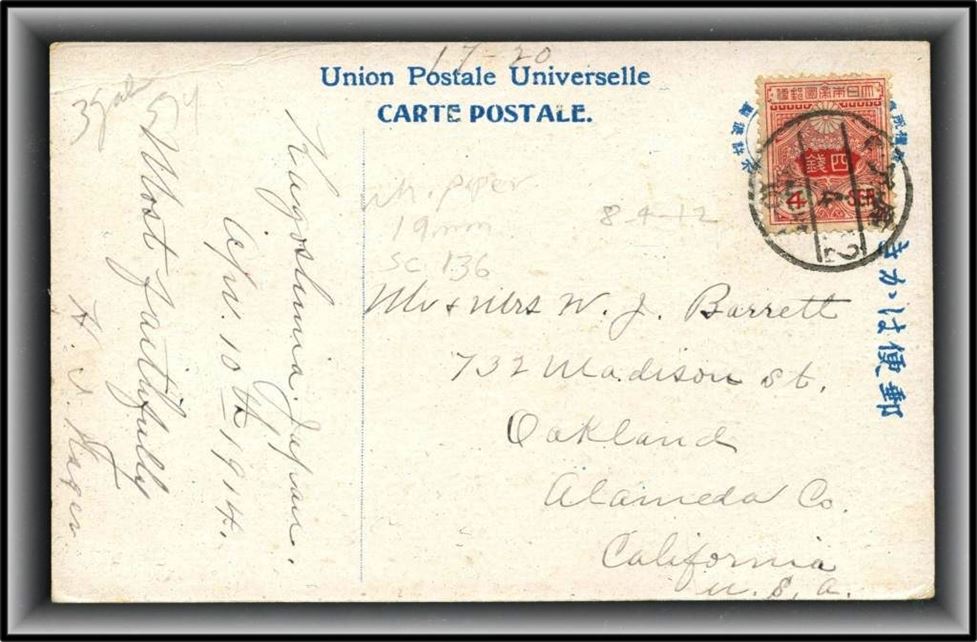 17-20
Union Postale Universelle
CARTE POSTALE.
大日本帝國郵便
四錢
4
Kagoshima. Japan.
Apr. 10th 1914.
Most faithfully
wh. paper
19mm
SC 136
8-4-12
Mr & Mrs W. J. Barrett
732 Madison St.
Oakland
Alameda Co.
California
U. S. A.
きかは便郵